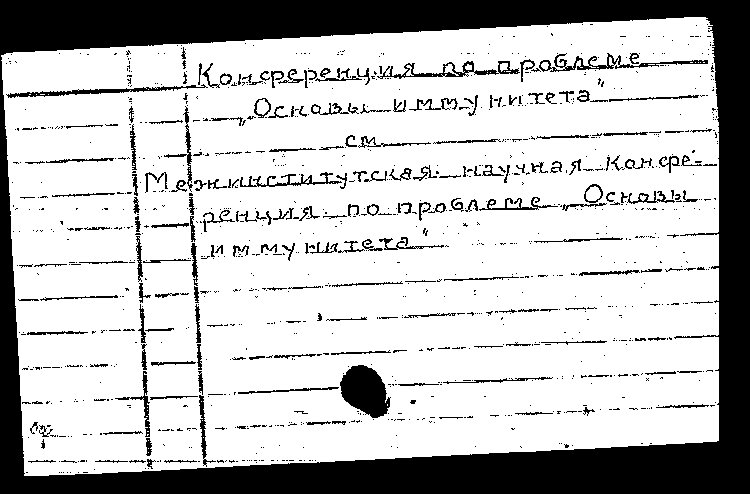 Конференция по проблеме
„Основы иммунитета“
см.
Межинститутская научная конфе-
ренция по проблеме „Основы
иммунитета“